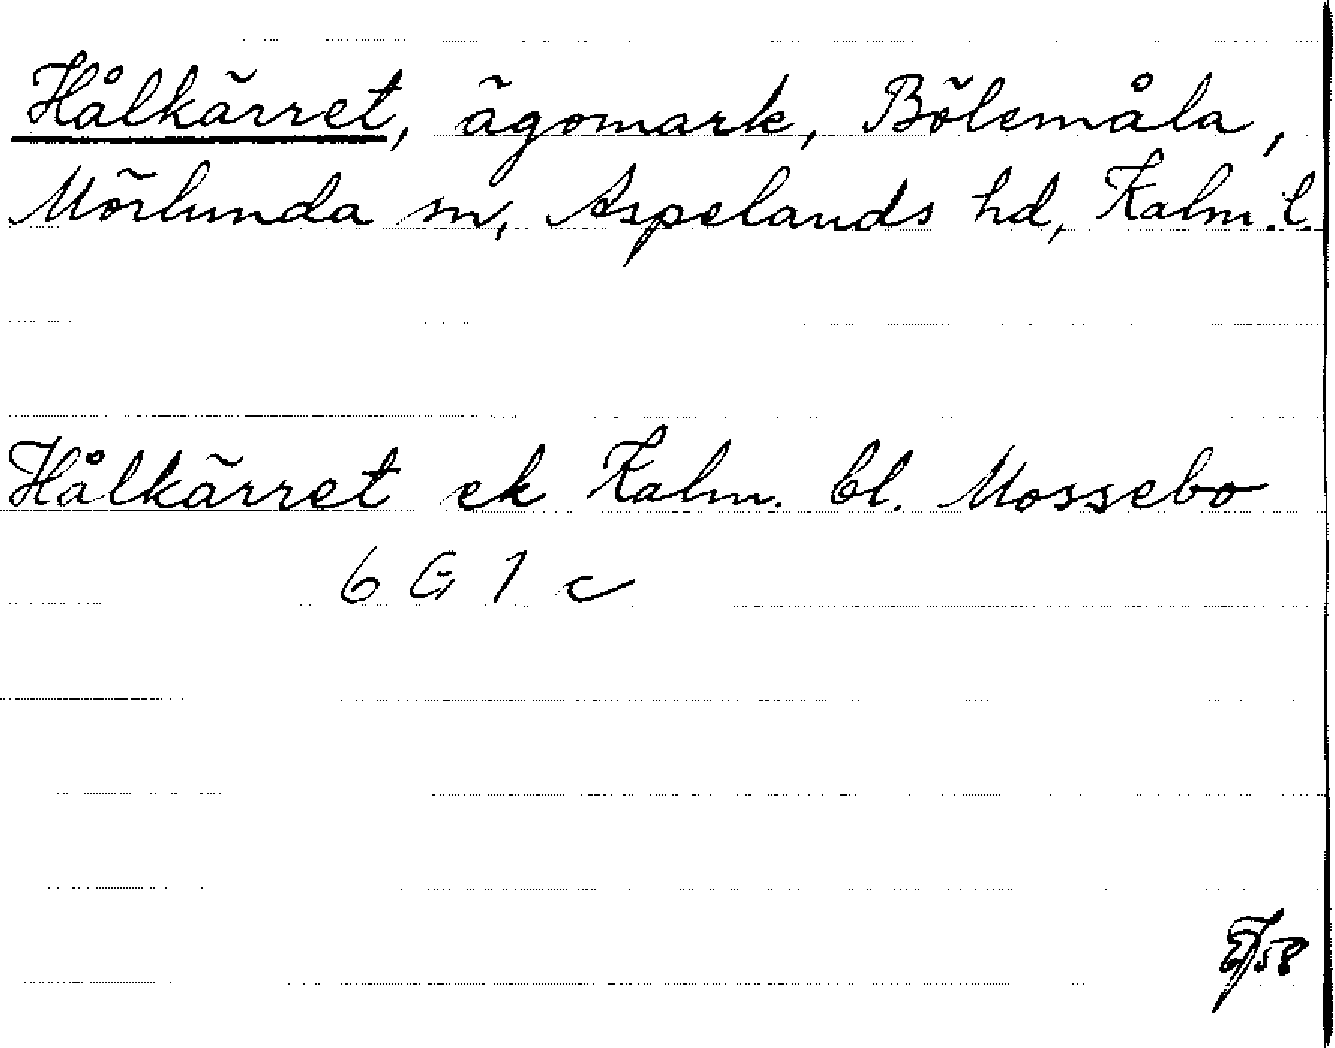 Hålkärret, ägomark, Bölemåla,
Mörlunda sn, Aspelands hd, Kalm. l.
Hålkärret ek Kalm. bl. Mossebo
6 G 1 c